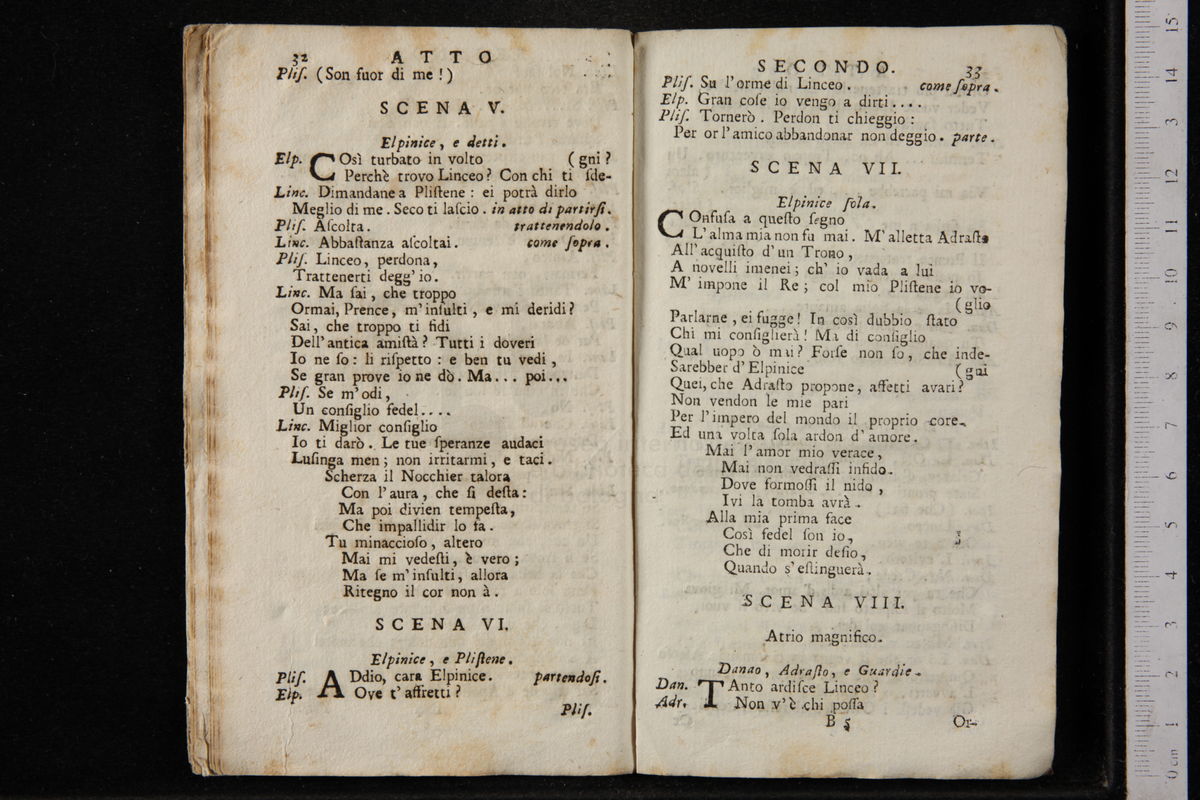 32 ATTO
Pliſ. (Son fuor di me!)
SCENA V.
Elpinice, e detti.
Elp. COsì turbato in volto (gni?
Perchè trovo Linceo? Con chi ti ſde-
Linc. Dimandane a Pliſtene: ei potrà dirlo
Meglio di me. Seco ti laſcio. in atto di partirſi.
Pliſ. Aſcolta. trattenendolo.
Linc. Abbaſtanza aſcoltai. come ſopra.
Pliſ. Linceo, perdona,
Trattenerti degg' io.
Linc. Ma ſai, che troppo
Ormai, Prence, m' inſulti, e mi deridi?
Sai, che troppo ti fidi
Dell' antica amiſtà? Tutti i doveri
Io ne ſo: li riſpetto: e ben tu vedi,
Se gran prove io ne dò. Ma... poi...
Pliſ. Se m' odi,
Un conſiglio fedel....
Linc. Miglior conſiglio
Io ti darò. Le tue ſperanze audaci
Luſinga men; non irritarmi, e taci.
Scherza il Nocchier talora
Con l' aura, che ſi deſta:
Ma poi divien tempeſta,
Che impallidir lo fa.
Tu minaccioſo, altero
Mai mi vedeſti, è vero;
Ma ſe m' inſulti, allora
Ritegno il cor non à.
SCENA VI.
Elpinice, e Pliſtene.
Pliſ. ADdio, cara Elpinice. partendoſi.
Elp. Ove t' affretti?
Pliſ.
SECONDO. 33
Pliſ. Su l' orme di Linceo. come ſopra.
Elp. Gran coſe io vengo a dirti....
Pliſ. Tornerò. Perdon ti chieggio:
Per or l' amico abbandonar non deggio. parte.
SCENA VII.
Elpinice ſola.
COnfuſa a queſto ſegno
L' alma mia non fu mai. M' alletta Adraſto
All' acquiſto d' un Trono,
A novelli imenei; ch' io vada a lui
M' impone il Re; col mio Pliſtene io vo-
(glio
Parlarne, ei fugge! In così dubbio ſtato
Chi mi conſiglierà! Ma di conſiglio
Qual uopo ò mai? Forſe non ſo, che inde-
Sarebber d' Elpinice (gni
Quei, che Adraſto propone, affetti avari?
Non vendon le mie pari
Per l' impero del mondo il proprio core.
Ed una volta ſola ardon d' amore.
Mai l' amor mio verace,
Mai non vedraſſi infido.
Dove formoſſi il nido,
Ivi la tomba avrà.
Alla mia prima face
Così fedel ſon io,
Che di morir deſio,
Quando s' eſtinguerà.
SCENA VIII.
Atrio magnifico.
Danao, Adraſto, e Guardie.
Dan. TAnto ardiſce Linceo?
Adr. Non v' è chi poſſa
B 5 Or-